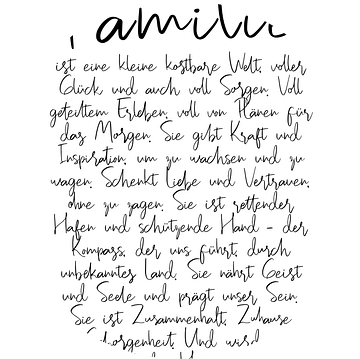 Familie
ist eine kleine kostbare Welt, voller
Glück und auch voll Sorgen. Voll
geteiltem Erleben, voll von Plänen für
das Morgen. Sie gibt Kraft und
Inspiration, um zu wachsen und zu
wagen. Schenkt Liebe und Vertrauen,
ohne zu zagen. Sie ist rettender
Hafen und schützende Hand - der
Kompass, der uns führt, durch
unbekanntes Land. Sie nährt Geist
und Seele und prägt unser Sein.
Sie ist Zusammenhalt, Zuhause
Geborgenheit. Und wird